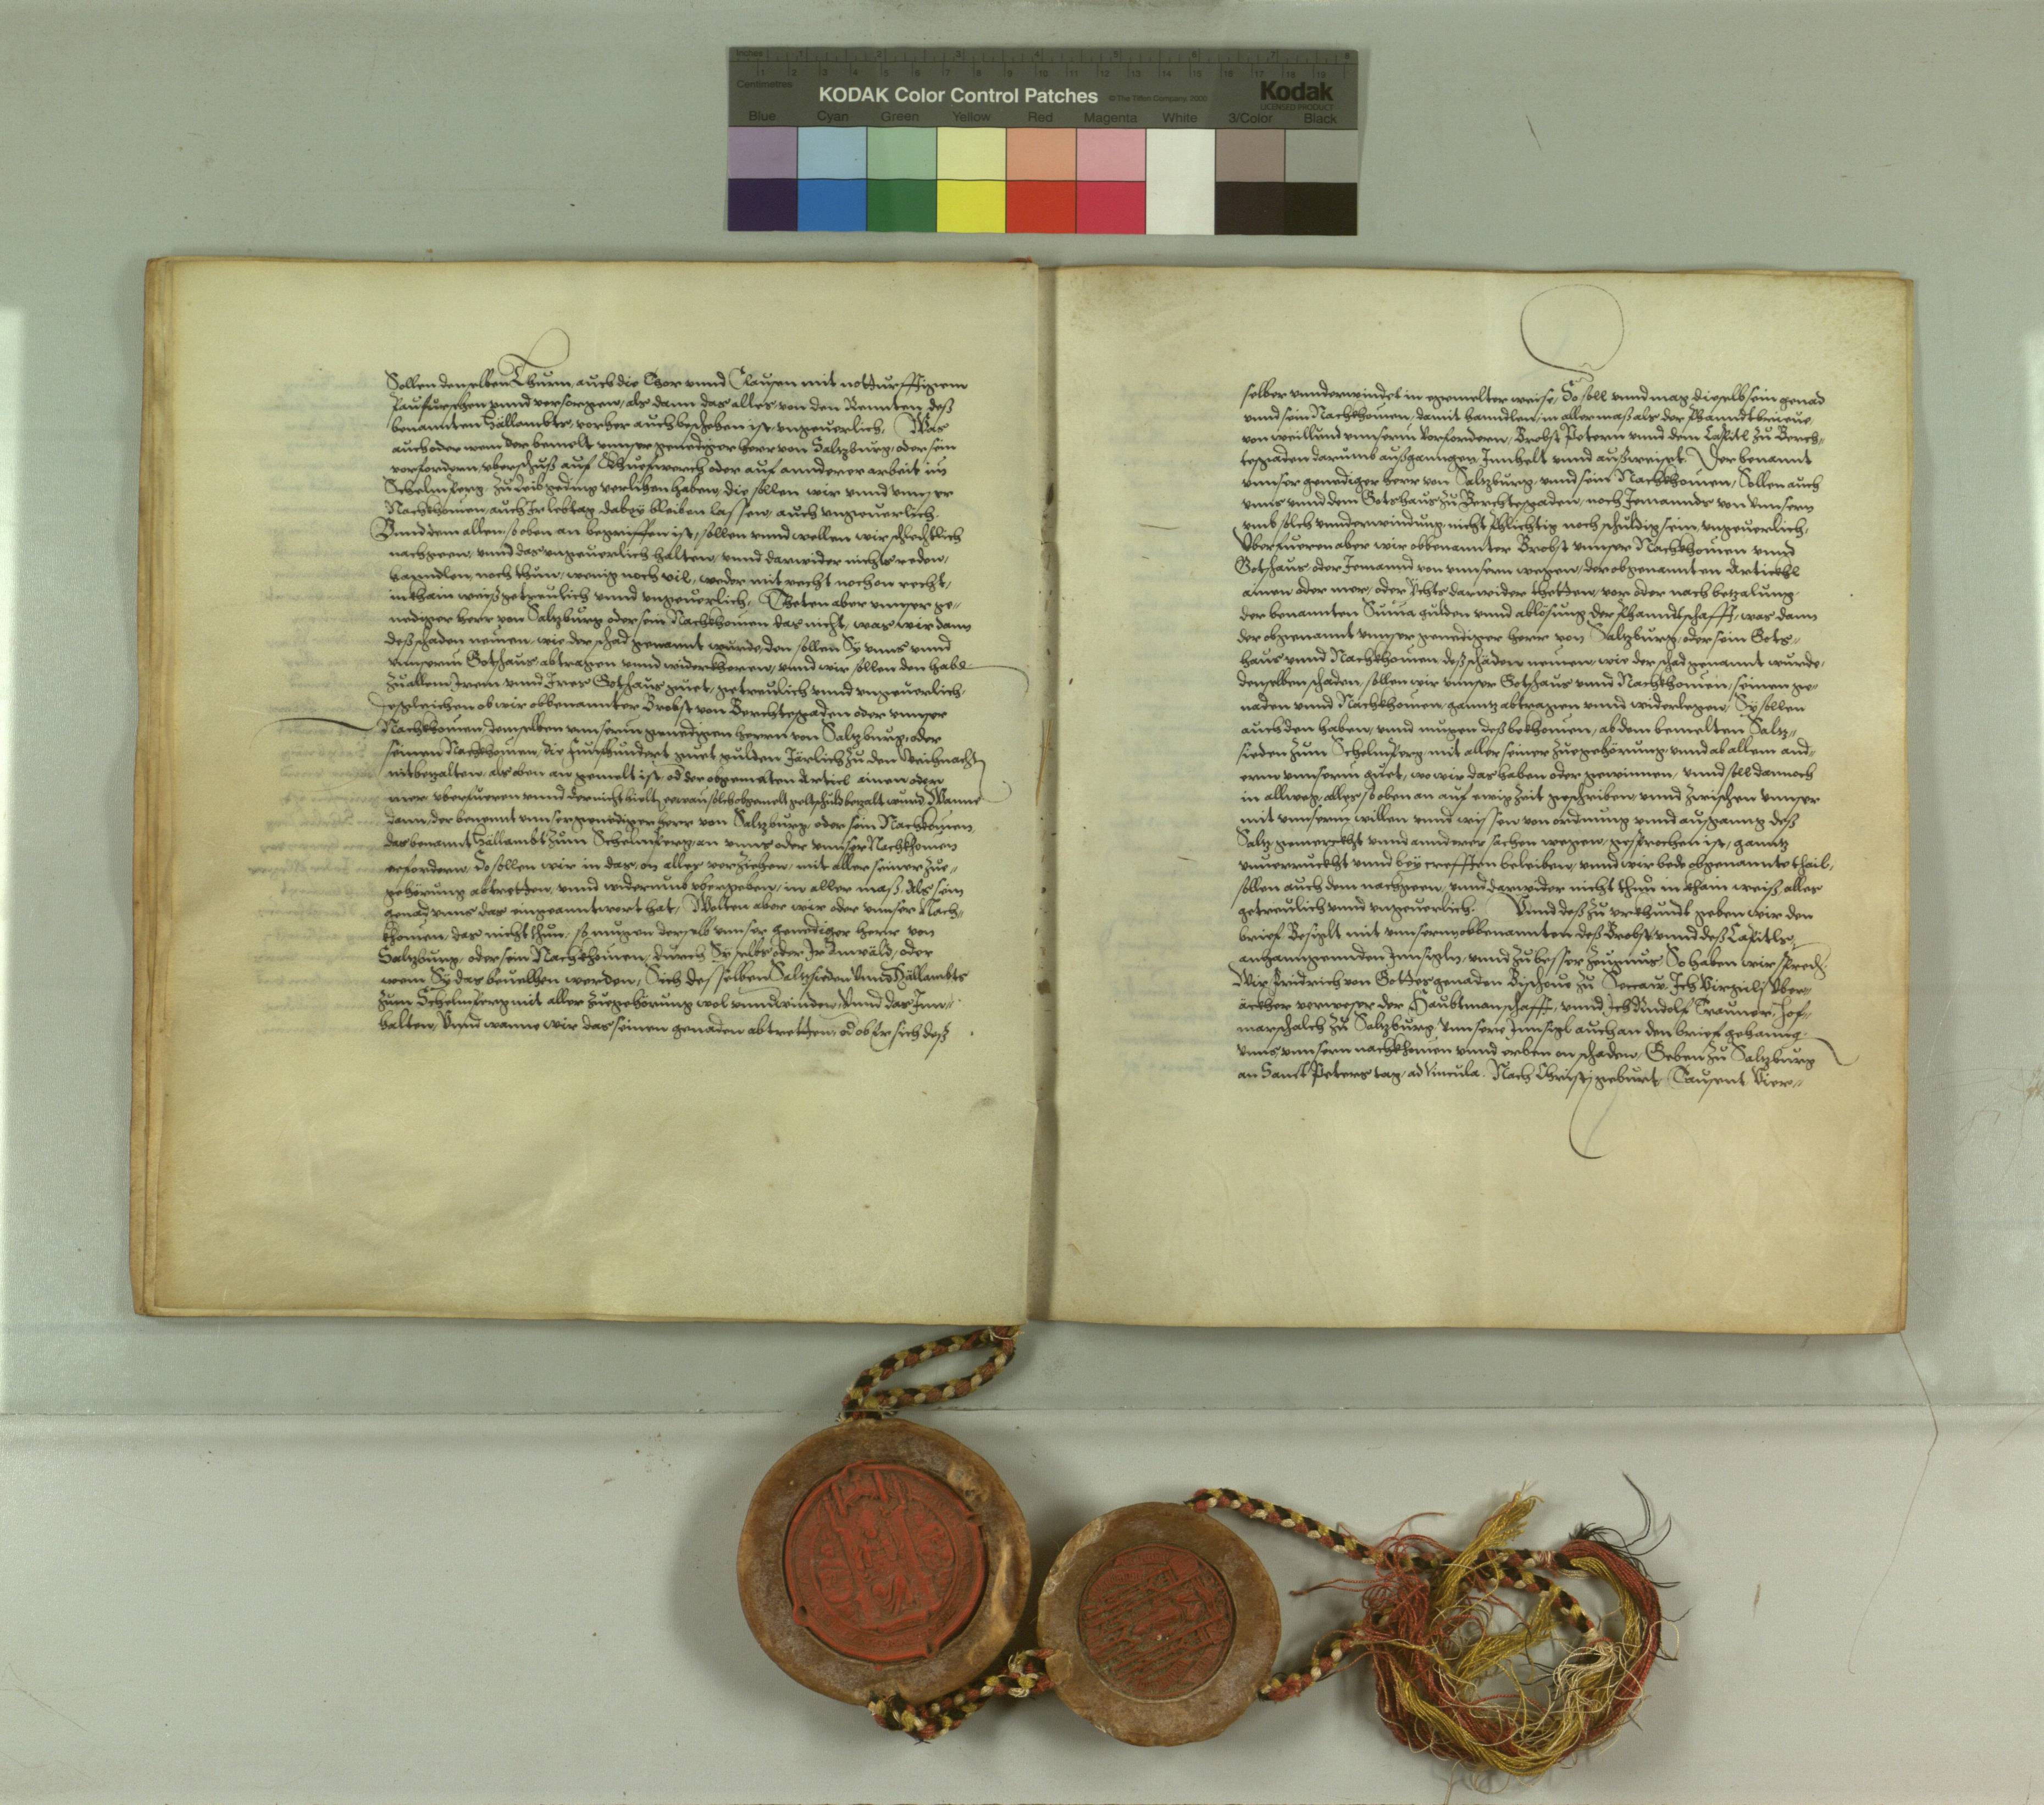 Inches 1 2 3 4 5 6 7 8
1 2 3 4 5 6 7 8 9 10 11 12 13 14 15 16 17 18 19
Centimetres
KODAK Color Control Patches © The Tiffen Company, 2000 Kodak
LICENSED PRODUCT
Blue Cyan Green Yellow Red Magenta White 3/Color Black
Sollen denselben Thurn, auch die Thor vnnd Clausen mit notturfftigem
vnnd versorgen, als dann das alles von den Rennten deß
benannten Hällambts, vorher auch beschehen ist, vngeuerlich, Was
auch oder wem der bemelt vnnser genediger herr von Saltzburg, oder sein
vorfordern, vberschuß auf oder auf annderer arbeit im
Schelmperg, zu Leibgeding verlihen haben, die sollen wir vnnd vnnser
Nachkhomen, auch Ir lebtag dabey bleiben lassen, auch vngeuerlich,
Vnnd dem allem, so oben an begriffen ist, sollen vnnd wellen wir
nachgeen, vnnd das vngeuerlich halten, vnnd darwider nichts reden,
hanndlen, noch thun, wenig noch vil, weder mit recht noch on recht,
in khain weiß getreulich vnnd vngeuerlich, Theten aber vnnser ge-
nediger herr von Saltzburg oder sein Nachkhomen das nicht, was wir dann
deß schaden nemen, wie der schad genannt wurde, den sollen Sy vnns vnnd
vnnserm Gotshaus abtragen vnnd widerkheren, vnnd wir sollen den haben
zu allem Irem vnnd Ires Gotshaus guet, getreulich vnnd vngeuerlich,
Desgleichen ob wir obbenannter Brobst von Berchtesgaden oder vnnser
Nachkhomen, demselben vnnserm genedigen herrn von Saltzburg, oder
seinen Nachkhomen, die Funfhundert guet gulden Järlich zu den Weihnacht
nit bezalten, als oben an gemelt ist, od der obgemelten Articl ainen oder
mer vberfueren vnnd der nicht hielten, obgemelt geltschuld bezalt wurd, Wanne
dann, der benennt vnnser genediger herr von Saltzburg, oder sein Nachkhomen,
das benannt Hällambt zum Schelmperg, an vnns oder vnnser Nachkhomen
erfordern, So sollen wir in das, on alles verziehen, mit aller seiner zue-
gehörung abtretten, vnnd widerumb vbergeben, in aller maß, Als sein
genad vnns das eingeanntwort hat, Wolten aber wir oder vnnser Nach-
khomen, das nicht thun, so mugen derselb vnnser genediger herr von
Saltzburg, oder sein Nachkhomen, durch Sy selbs oder Ir Anwäld, oder
wem Sy das beuelhen werden, Sich desselben Saltzsieden vnnd Hällambts
zum Schelmperg mit aller zuegehörung wol vnnderwinden, Vnnd das Inn-
halten, Vnnd wanne wir das seinen genaden abtretten, od ob Er sich deß
selber vnnderwindet in egemelter weise, So soll vnnd mag dieselb sein genad
vnnd sein Nachkhomen, damit hanndlen, in aller maß als der Phanndtbrieue
von weillund vnnserm Vorfordern, Brobst Petern vnnd dem Capitl zu Berch-
tesgaden darumb außganngen Innhelt vnnd außweiset. Der benannt
vnnser genediger herr von Saltzburg, vnnd sein Nachkhomen, Sollen auch
vnns vnnd dem Gotshaus zu Berchtesgaden, noch Jemannds von vnnsern
vmb solch vnnderwindung nicht Phlichtig noch schuldig sein, vngeuerlich,
Vberfueren aber wir obbenannter Brobst vnnser Nachkhomen vnnd
Gotshaus oder Jemannd von vnnsern wegen, der obgenannten Artickhl
ainen oder mer, oder Ichts darwider thetten, vor oder nach betzalung
der benannten Suma gulden vnnd ablösung der Phanndtschafft, was dann
der obgenannt vnnser genediger herr von Saltzburg, oder sein Gots-
haus vnnd Nachkhomen deß schäden nemen, wie der schad genannt wurde,
denselben schaden, sollen wir vnnser Gotshaus vnnd Nachkhomen, seinen ge-
naden vnnd Nachkhomen, ganntz abtragen vnnd widerlegen, Sy sollen
auch den haben, vnnd mugen deß bekhomen, ab dem bemelten Saltz-
sieden zum Schelmperg, mit aller seiner zuegehörung, vnnd ab allem and-
erm vnnserm guet, wo wir das haben oder gewinnen, vnnd soll dannoch
in allweg alles, so oben an auf ewig zeit geschriben, vnnd zwischen vnnser
mit vnnserm willen vnnd wissen von ordnung vnnd außgang deß
Saltz gemerckht vnnd annderer sachen wegen, gesprochen ist, ganntz
vnuerruckht vnnd bey crefften beleiben, vnnd wir bede obgenannte thail,
sollen auch dem nachgeen, vnnd darwider nicht thun in khain weiß alles
getreulich vnnd vngeuerlich. Vnnd deß zu vrkhundt geben wir den
brief Besiglt mit vnnserm obbenannten deß Brobst vnnd deß Capitls
anhanngennden Innsigln, vnnd zu besser zeugnus, So haben wir
Wir Fridrich von Gottes genaden Bischoue zu Seccaw, Ich Virgili Vber-
äckher verweser der Haubtmanschafft, vnnd Ich Rudolf Trauner, Hof-
marschalch zu Saltzburg, Vnnsere Innsigl auch an den brief gehanng
vnns vnnsern nachkhomen vnnd erben on schaden, Geben zu Saltzburg
an Sanct Peters tag, ad Vincula. Nach Christj geburt, Tausent Vier-